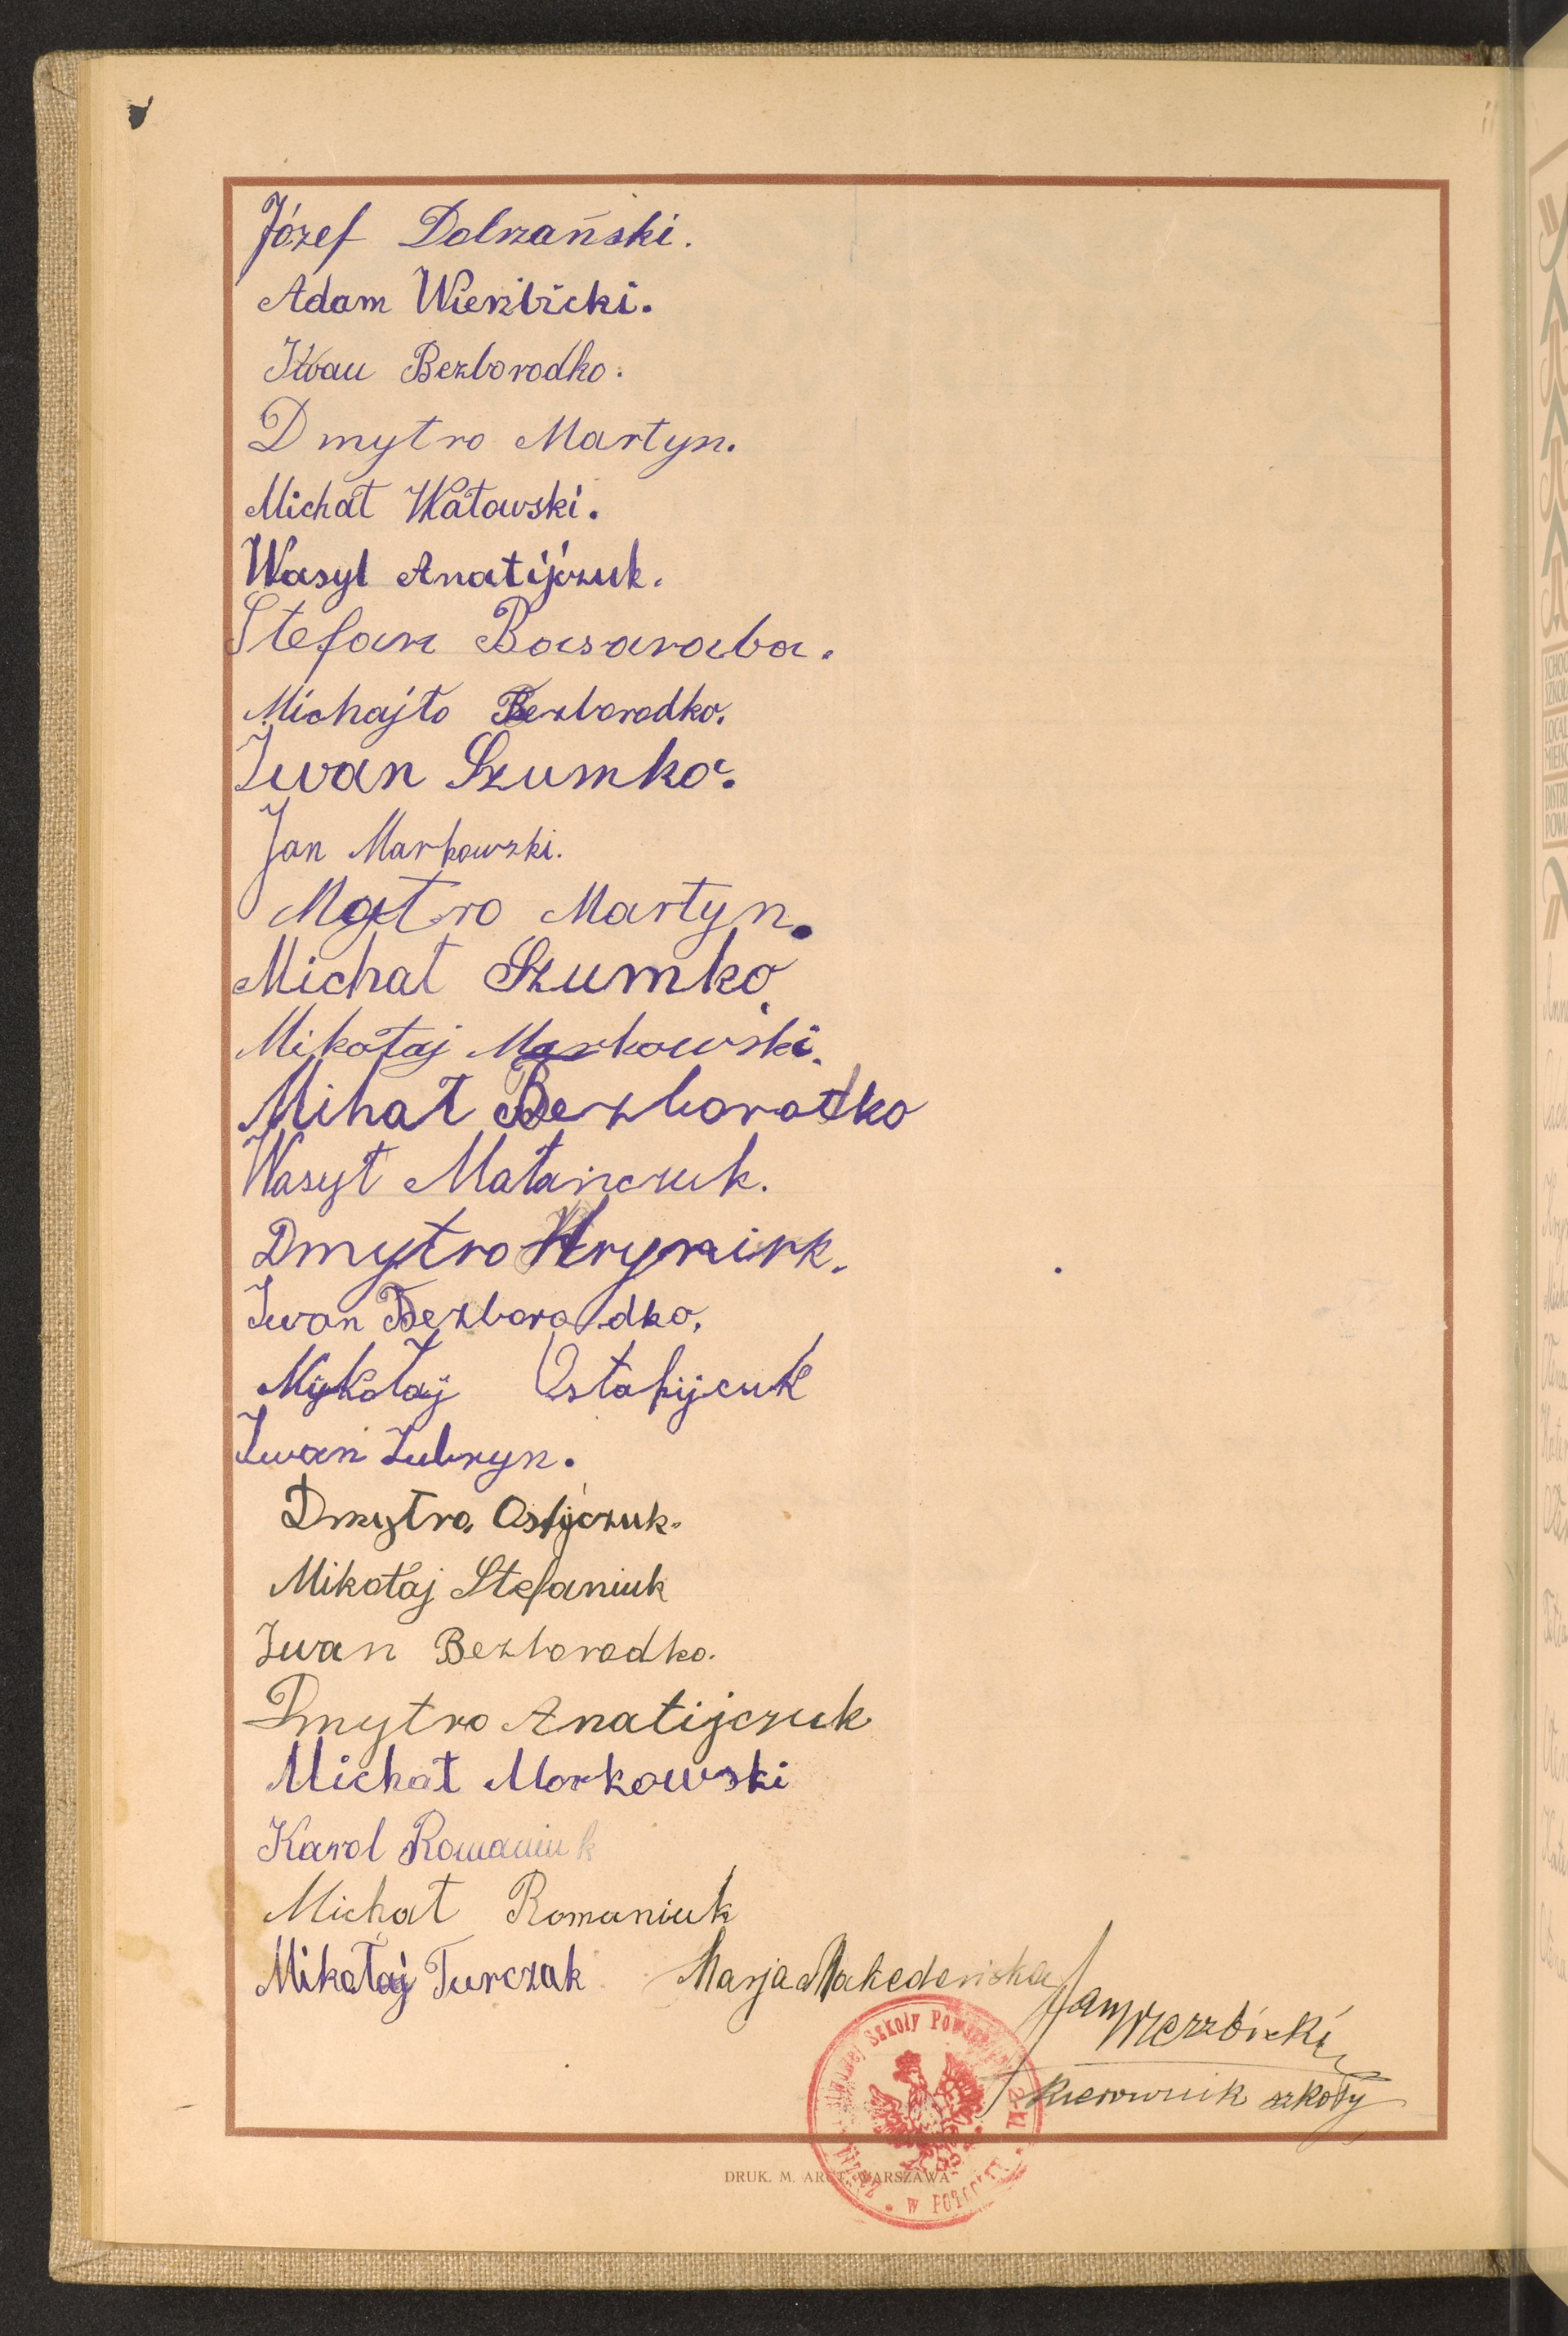 Józef Dolrzański.
Adam Wierzbicki.
Iwan Bezborodko.
Dmytro Martyn.
Michał Watawski.
Wasyl Anatijczuk.
Stefan Basaraba.
Michajło Bezborodko.
Iwan Szumko.
Jan Markowski.
Mytro Martyn.
Michał Szumko
Mikołaj Markowski.
Mihał Bezborodko
Wasył Małanczuk.
Dmytro
Iwan Bezborodko.
Mykołaj Ostapijcuk
Iwan Zubryn.
Dmytro
Mikołaj Stefaniuk
Iwan Bezborodko.
Dmytro Anatijczuk
Michał Morkowski
Karol Romaniuk
Michał Romaniuk
Mikołaj Turczak Marja Makedońska
Jan Wierzbicki
Kierownik szkoły
Szkoły
DRUK. M. ARCT, WARSZAWA